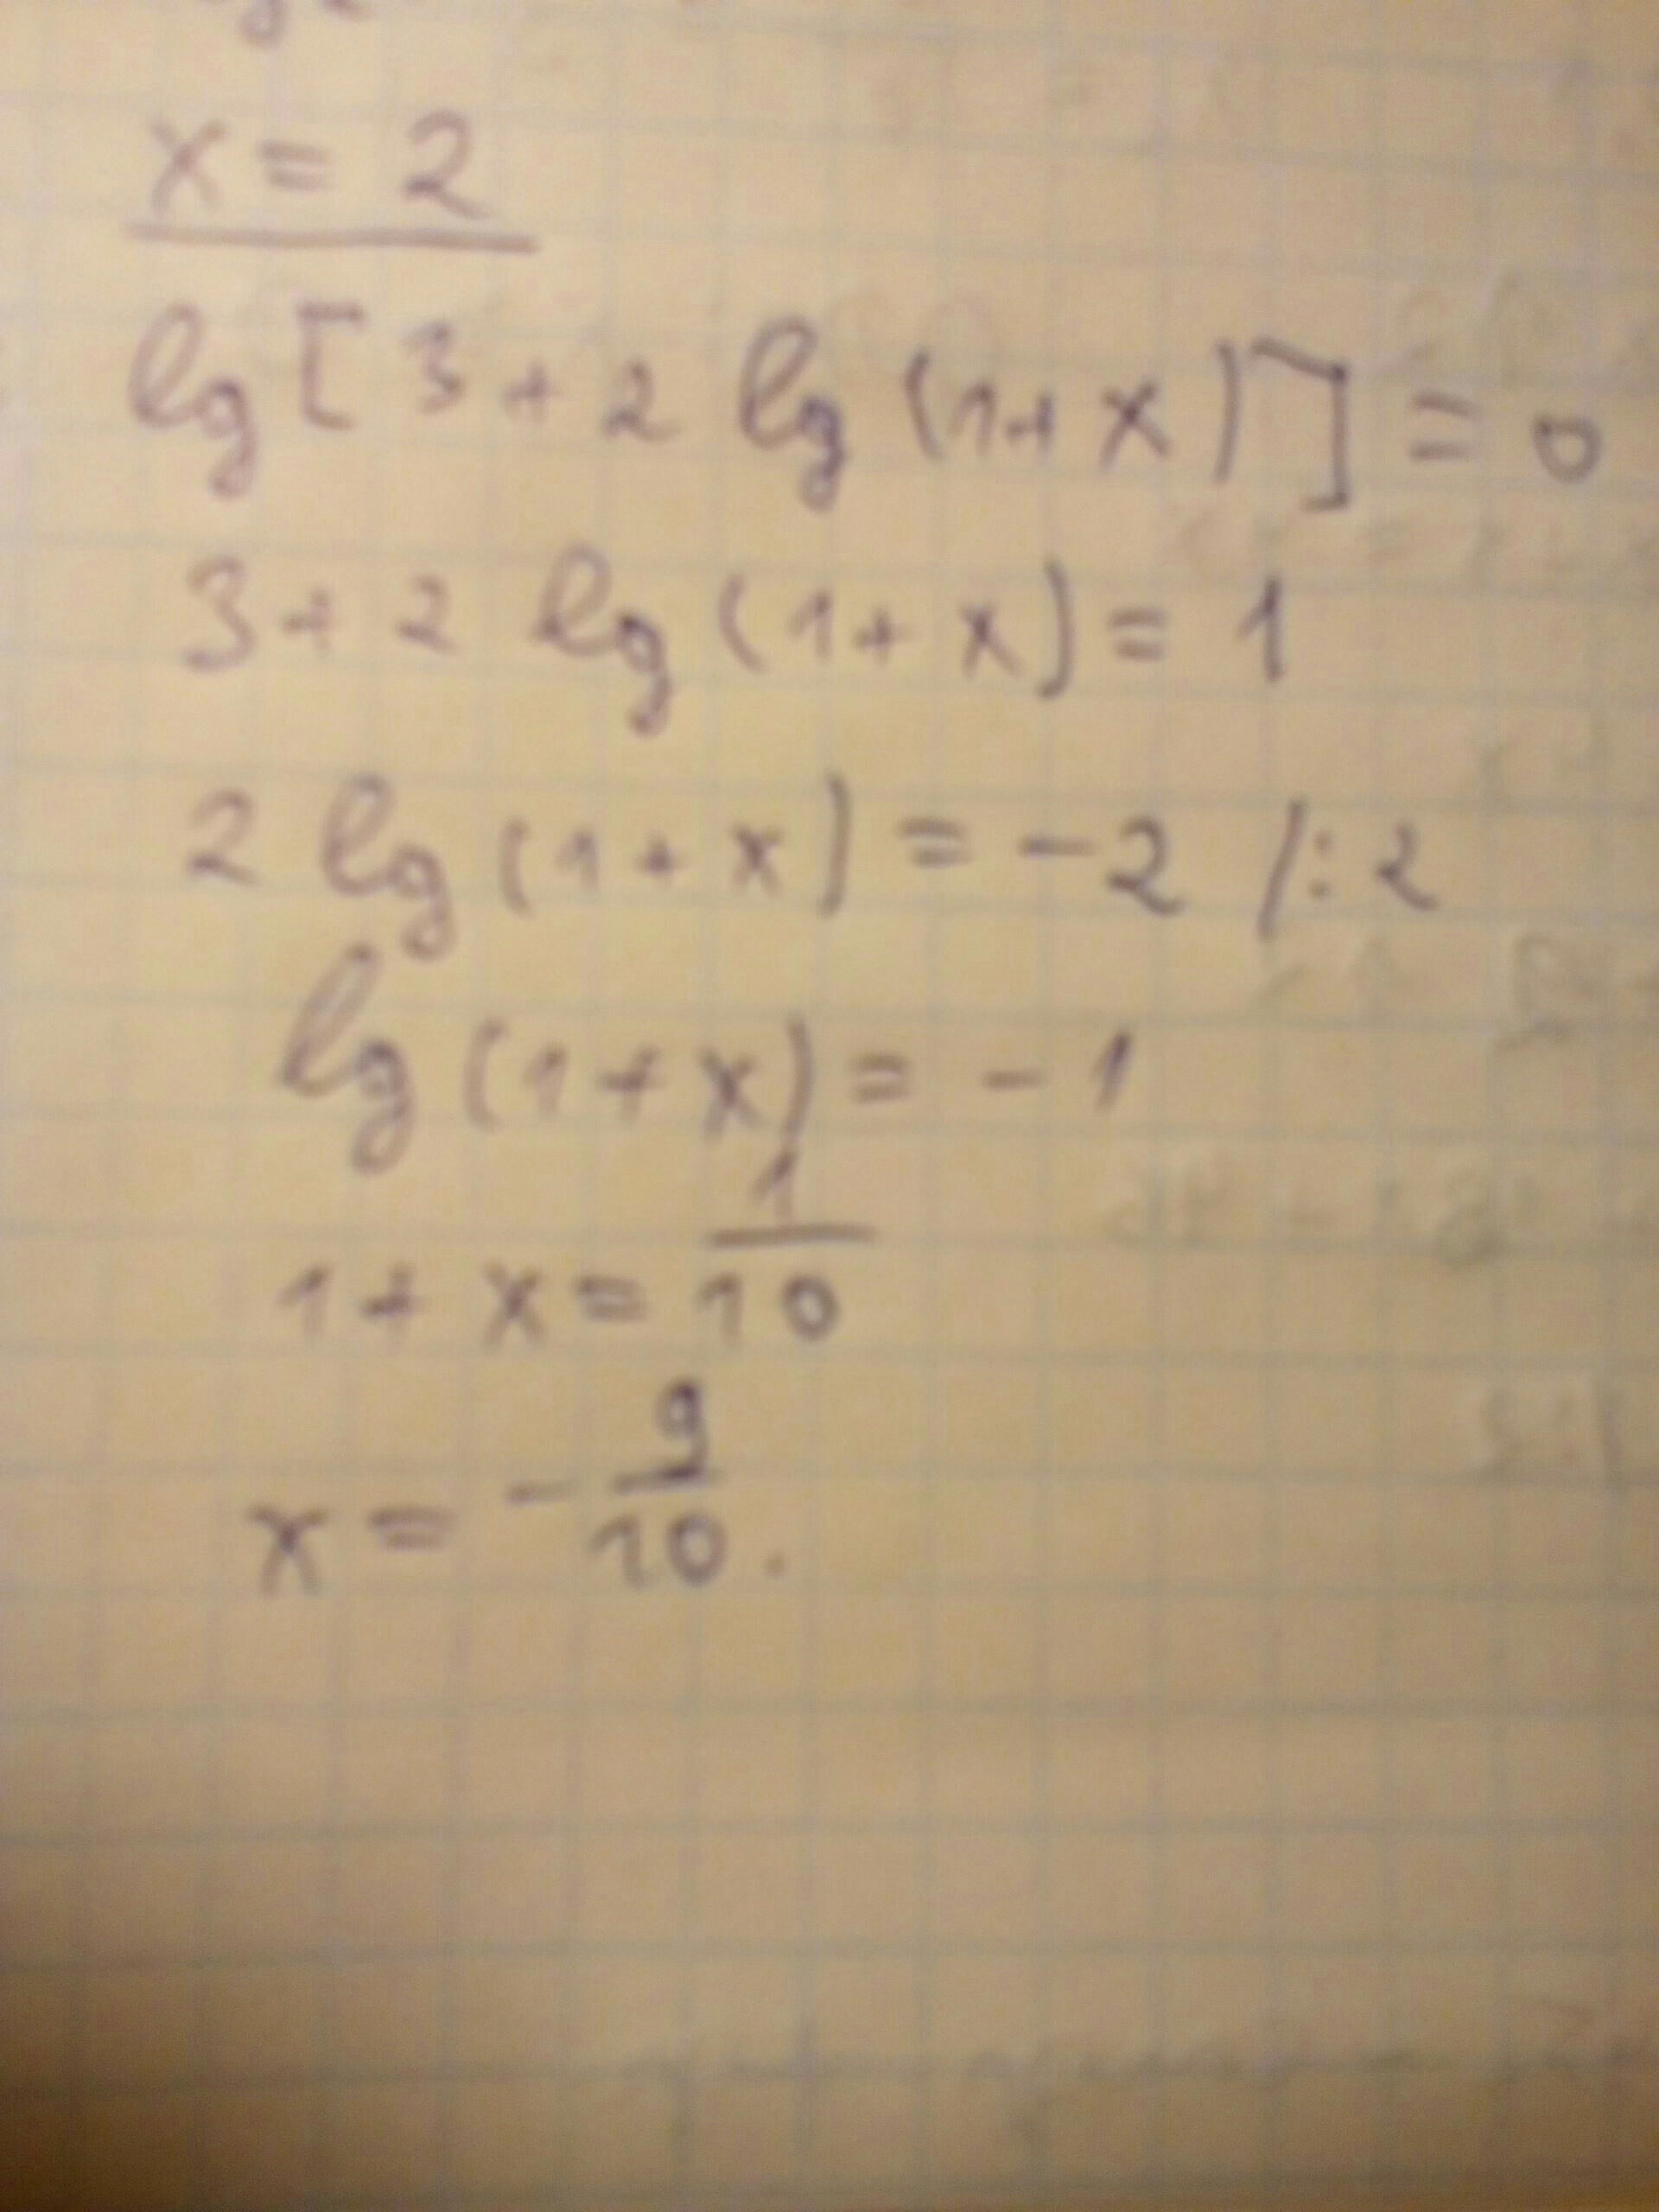 x = 2
lg [ 3 + 2 lg (1 + x ) ] = 0
3 + 2 lg (1 + x) = 1
2 lg (1 + x) = -2 /: 2
lg (1 + x) = - 1
1 + x = 1/10
x = - 9/10 .